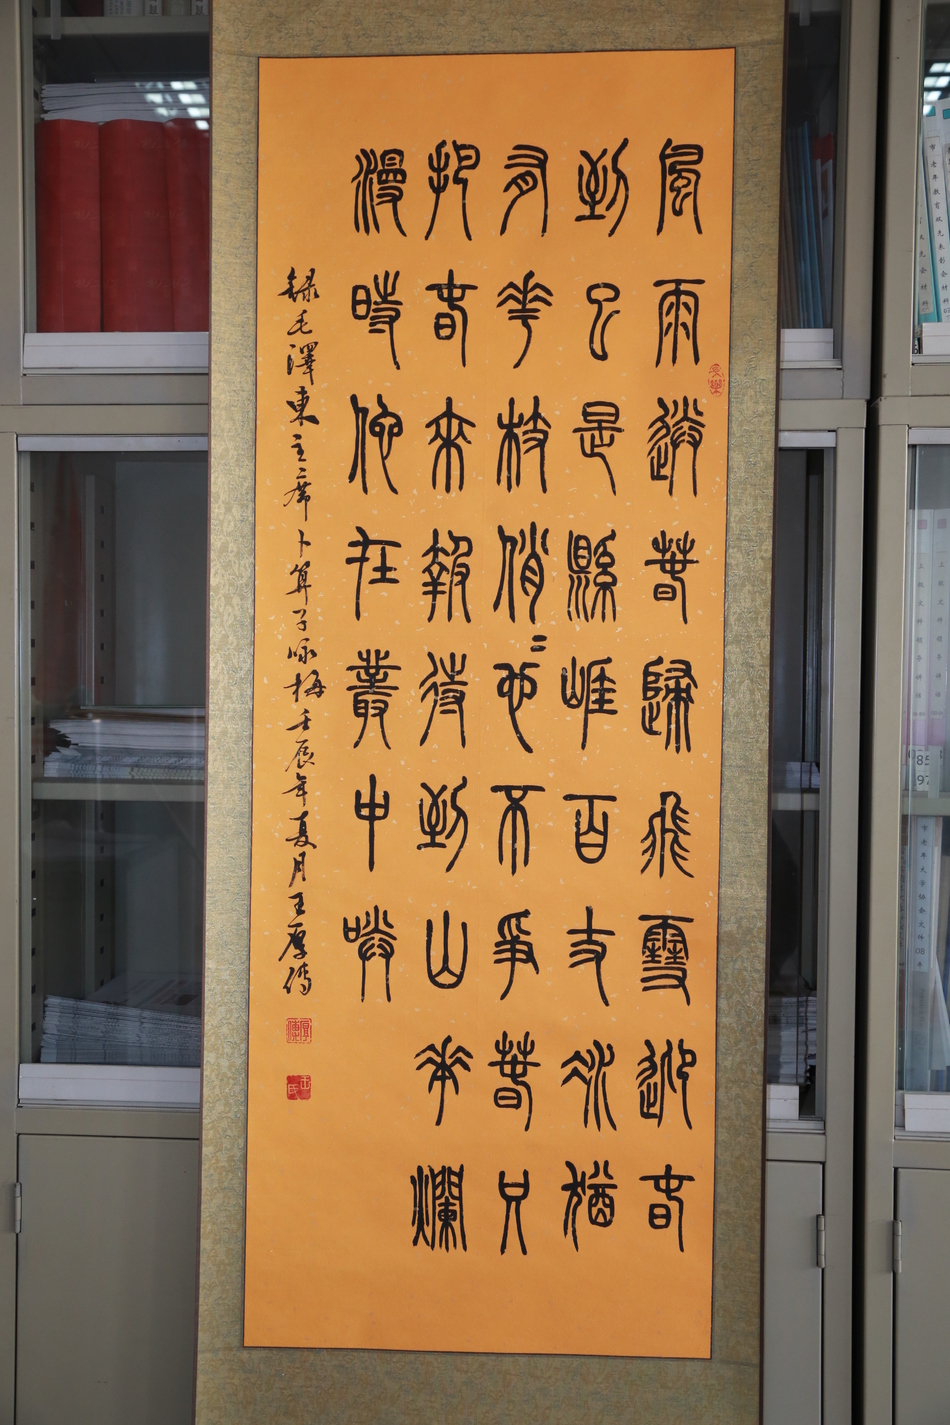 風雨送春歸飛雪迎春
到已是縣崖百丈冰猶
有花枝俏〻也不爭春只
把春來報待到山花爛
漫時他在叢中笑
録毛澤東主席卜算子咏梅壬辰年夏月王厚傳
厚傳
王氏